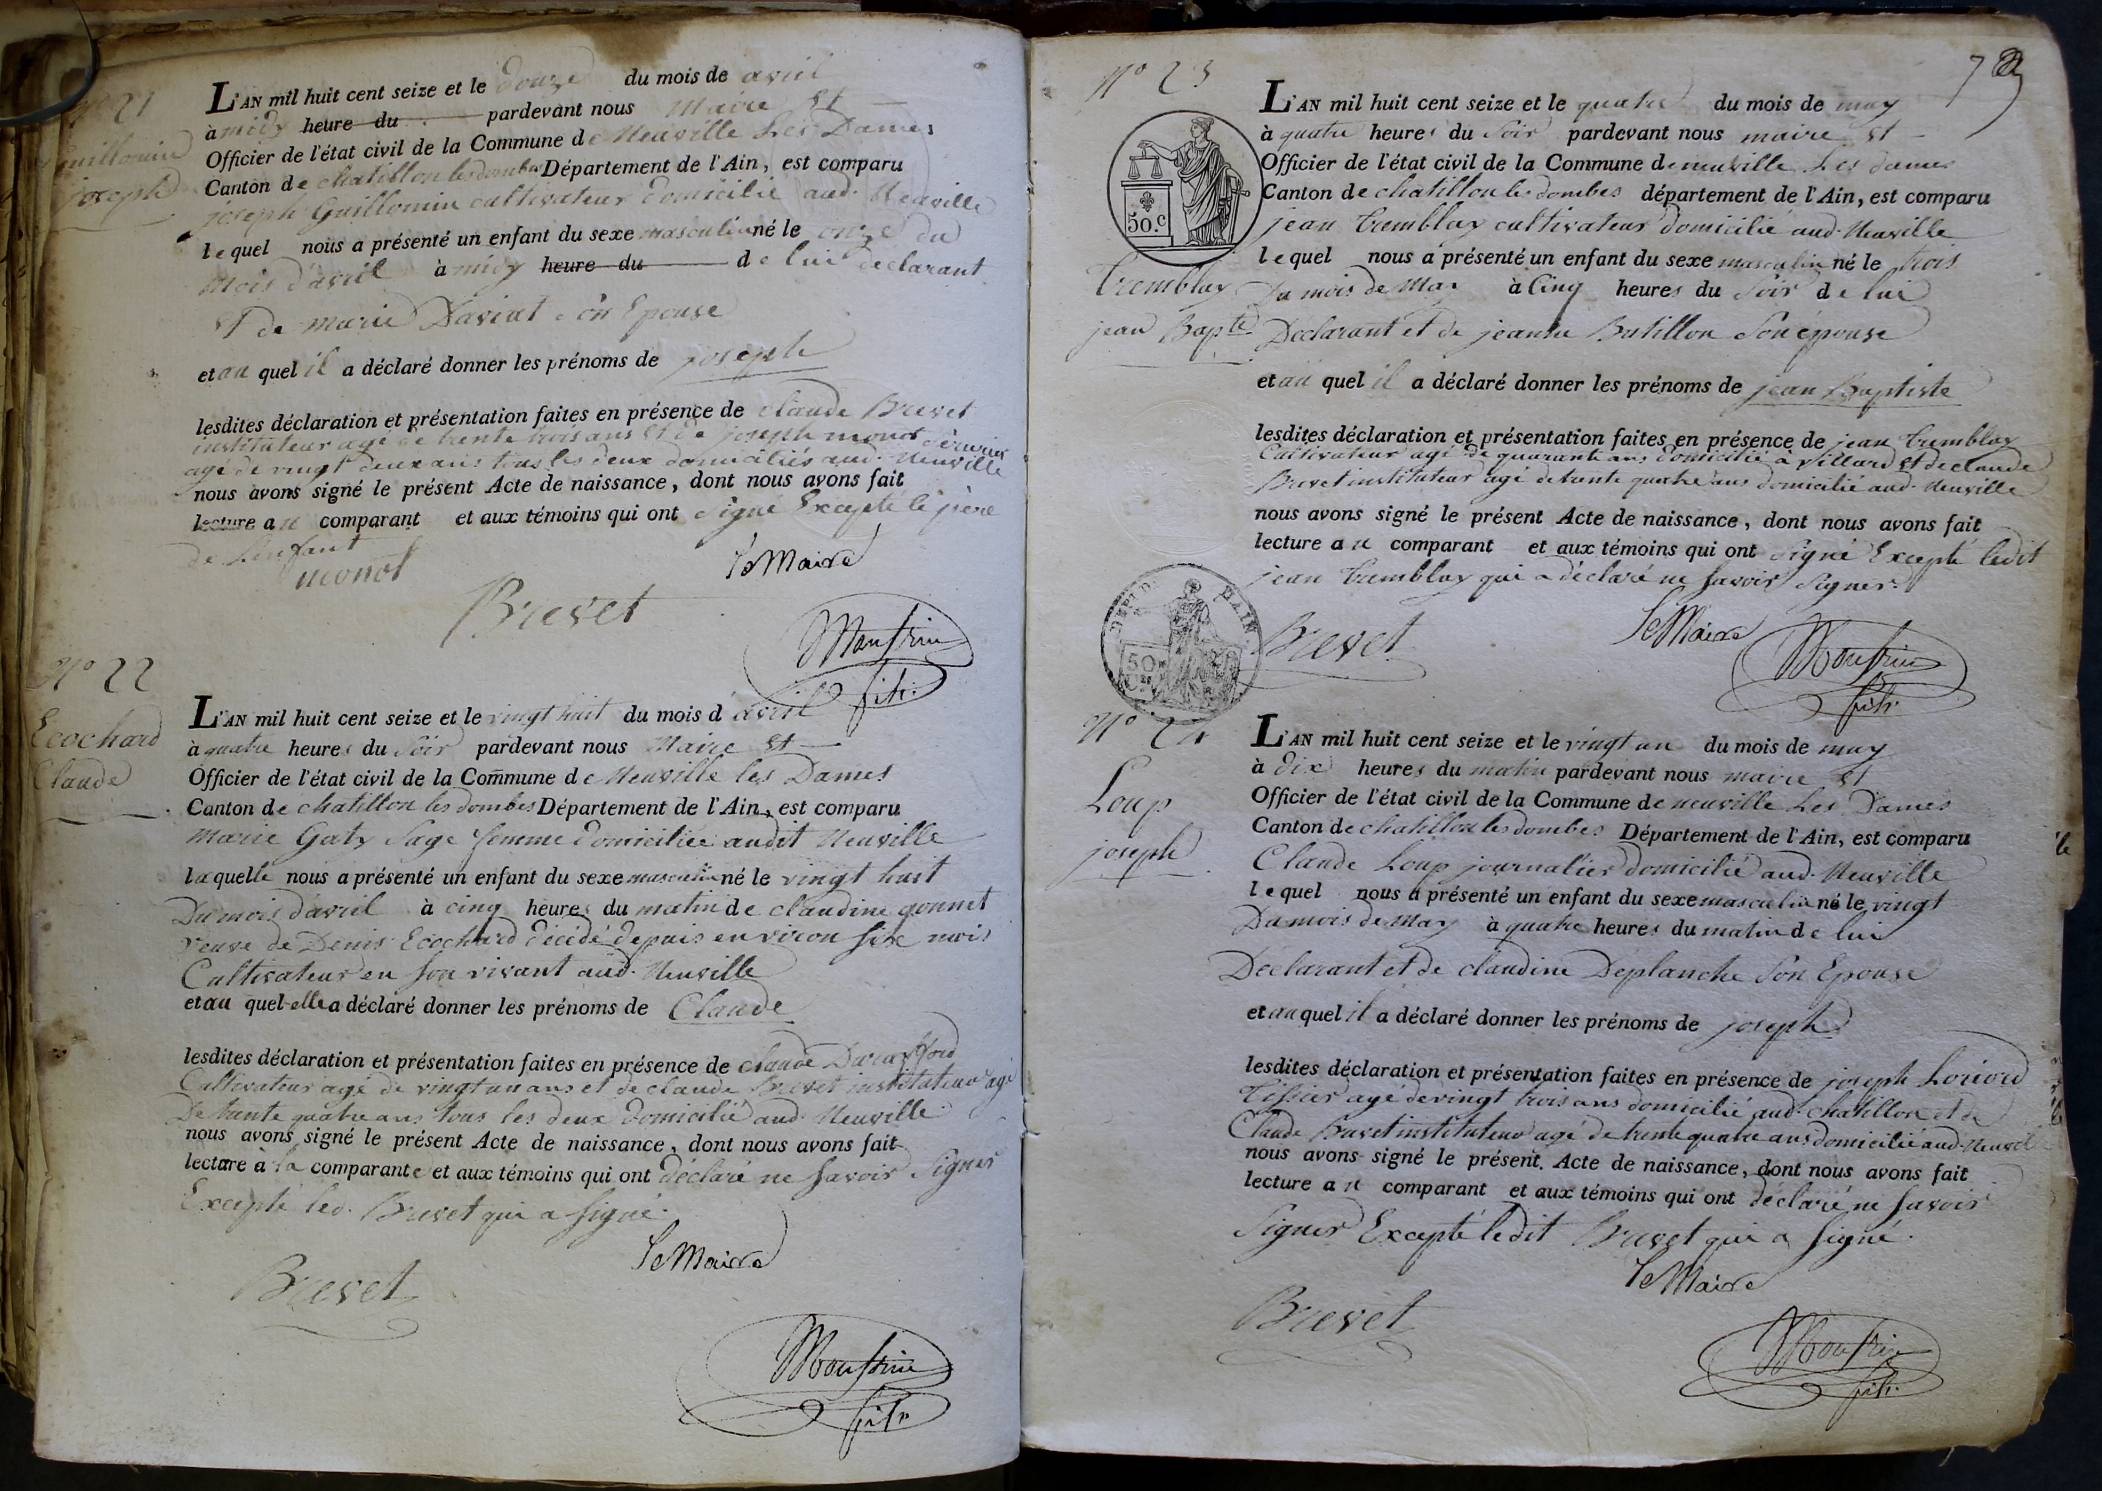 N° 21
Guillomin
joseph
L'AN mil huit cent seize et le douze du mois de avril
à midy heure du pardevant nous Maire et
Officier de l'état civil de la Commune de Neuville Les Dames
Canton de chatillon les dombes Département de l'Ain, est comparu
joseph Guillomin cultivateur domicilié aud. Neuville
lequel nous a présenté un enfant du sexe masculin né le onze du
mois d'avril à midy heure du de lui declarant
et de marie Daviat son Epouse
et au quel il a déclaré donner les prénoms de joseph
lesdites déclaration et présentation faites en présence de claude Brevet
instituteur agé de trente trois ans et de joseph monot
agé de vingt deux ans tous les deux domiciliés aud. Neuville
nous avons signé le présent Acte de naissance, dont nous avons fait
lecture au comparant et aux témoins qui ont signé Excepté le père
de L'enfant
monot
Le Maire
Brevet
Monfrin
fils
N° 22
Ecochard
Claude
L'AN mil huit cent seize et le vingt huit du mois d'avril
à quatre heures du Soir pardevant nous Maire et
Officier de l'état civil de la Com̄mune de Neuville les Dames
Canton de chatillon les dombes Département de l'Ain, est comparu
Marie Gaty Sage femme domiciliée audit Neuville
laquelle nous a présenté un enfant du sexe masculin né le vingt huit
Du mois d'avril à cinq heures du matin de claudine gonnet
veuve de Denis Ecochard décédé depuis environ six mois
Cultivateur en son vivant aud. Neuville
et au quel elle a déclaré donner les prénoms de Claude
lesdites déclaration et présentation faites en présence de claude
Cultivateur agé de vingt un ans et de claude Brevet instituteur agé
De trente quatre ans tous les deux domicilié aud. Neuville
nous avons signé le présent Acte de naissance, dont nous avons fait
lecture à la comparante et aux témoins qui ont déclaré ne savoir Signer
Excepté led. Brevet qui a signé.
Le Maire
Brevet
Monfrin
fils
N° 23
L'AN mil huit cent seize et le quatre du mois de may
à quatre heures du Soir pardevant nous maire et
Officier de l'état civil de la Commune de neuville Les dames
Canton de chatillon les dombes département de l'Ain, est comparu
50.c
jean Tremblay cultivateur domicilié aud. Neuville
lequel nous a présenté un enfant du sexe masculin né le trois
Tremblay
jean Bapte
Du mois de May à Cinq heures du Soir de lui
Déclarant et de jeanne Butillon Son épouse
et au quel il a déclaré donner les prénoms de jean Baptiste
lesdites déclaration et présentation faites en présence de jean Tremblay
Cultivateur agé de quarante ans domicilié à Villard et de claude
Brevet instituteur agé de trente quatre ans domicilié aud. Neuville
nous avons signé le présent Acte de naissance, dont nous avons fait
lecture au comparant et aux témoins qui ont signé Excepté ledit
jean Tremblay qui a déclaré ne savoir Signer.
Le Maire
Brevet
Monfrin
fils
N° 24
Loup
joseph
L'AN mil huit cent seize et le vingt un du mois de may
à dix heures du matin pardevant nous maire et
Officier de l'état civil de la Commune de neuville Les Dames
Canton de chatillon les dombes Département de l'Ain, est comparu
Claude Loup journalier domicilié aud. Neuville
lequel nous a présenté un enfant du sexe masculin né le vingt
Du mois de May à quatre heures du matin de lui
Déclarant et de claudine Deplanche Son Epouse
et au quel il a déclaré donner les prénoms de joseph
lesdites déclaration et présentation faites en présence de joseph Loriord
Tissier agé de vingt trois ans domicilié aud. chatillon et de
Claude Brevet instituteur agé de trente quatre ans domicilié aud. Neuvil
nous avons signé le présent Acte de naissance, dont nous avons fait
lecture au comparant et aux témoins qui ont déclaré ne savoir
Signer Excepté ledit Brevet qui a signé.
Le Maire
Brevet
Monfrin
fils